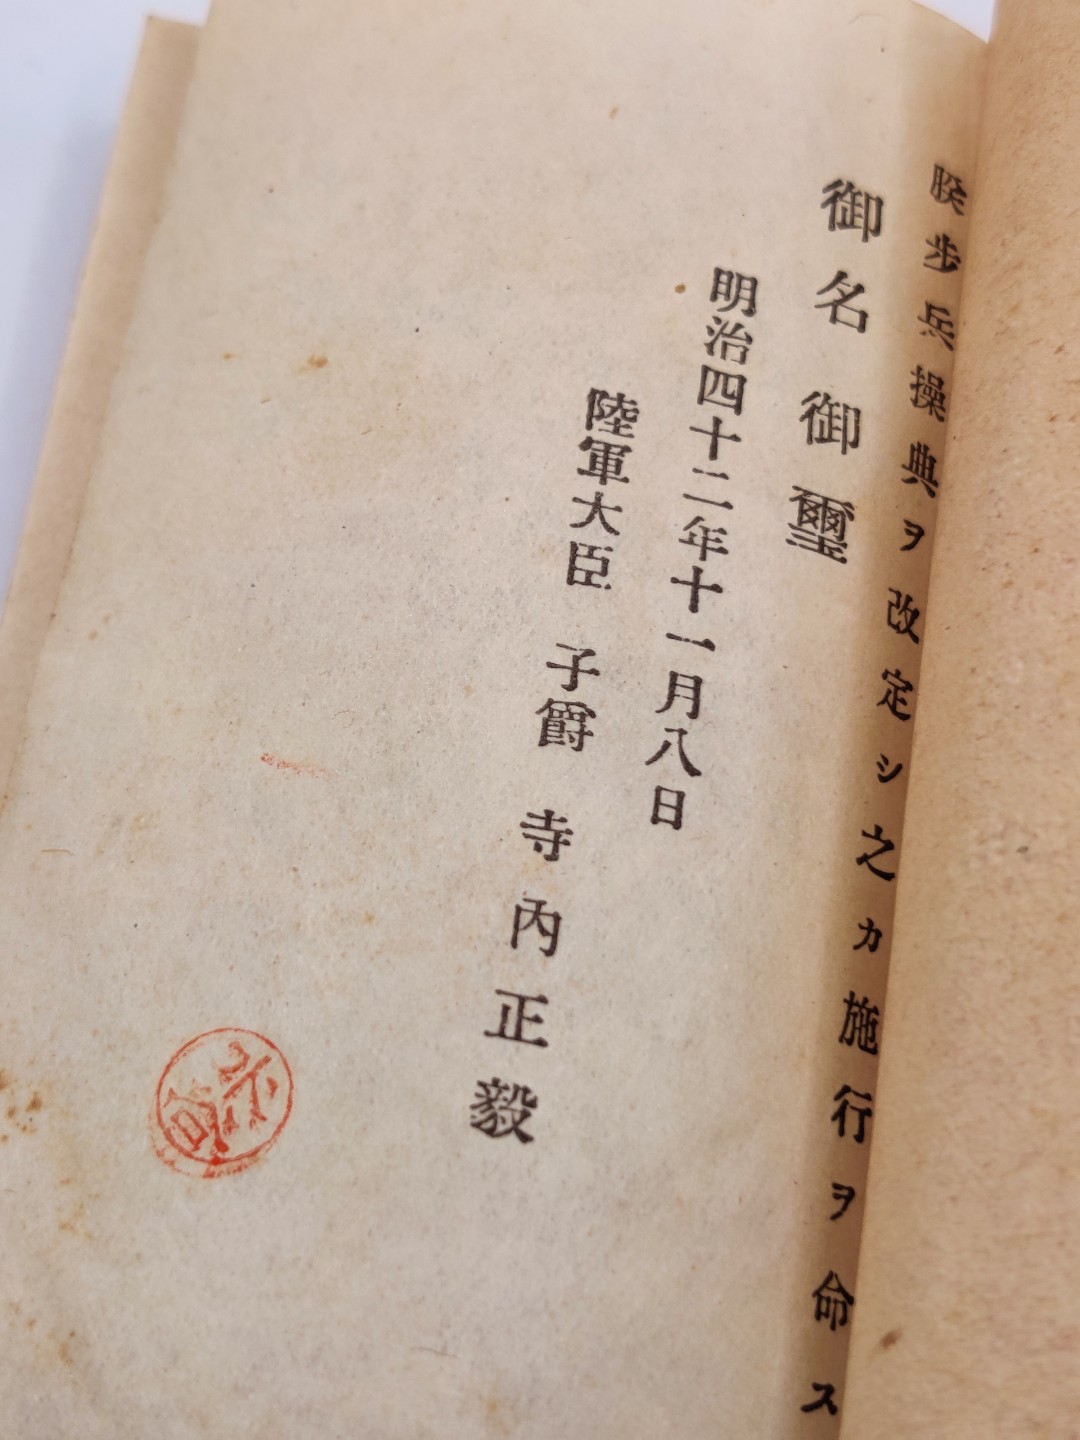 朕步兵操典ヲ改定シ之カ施行ヲ命ス
御名御璽
明治四十二年十一月八日
陸軍大臣 子爵 寺內正毅